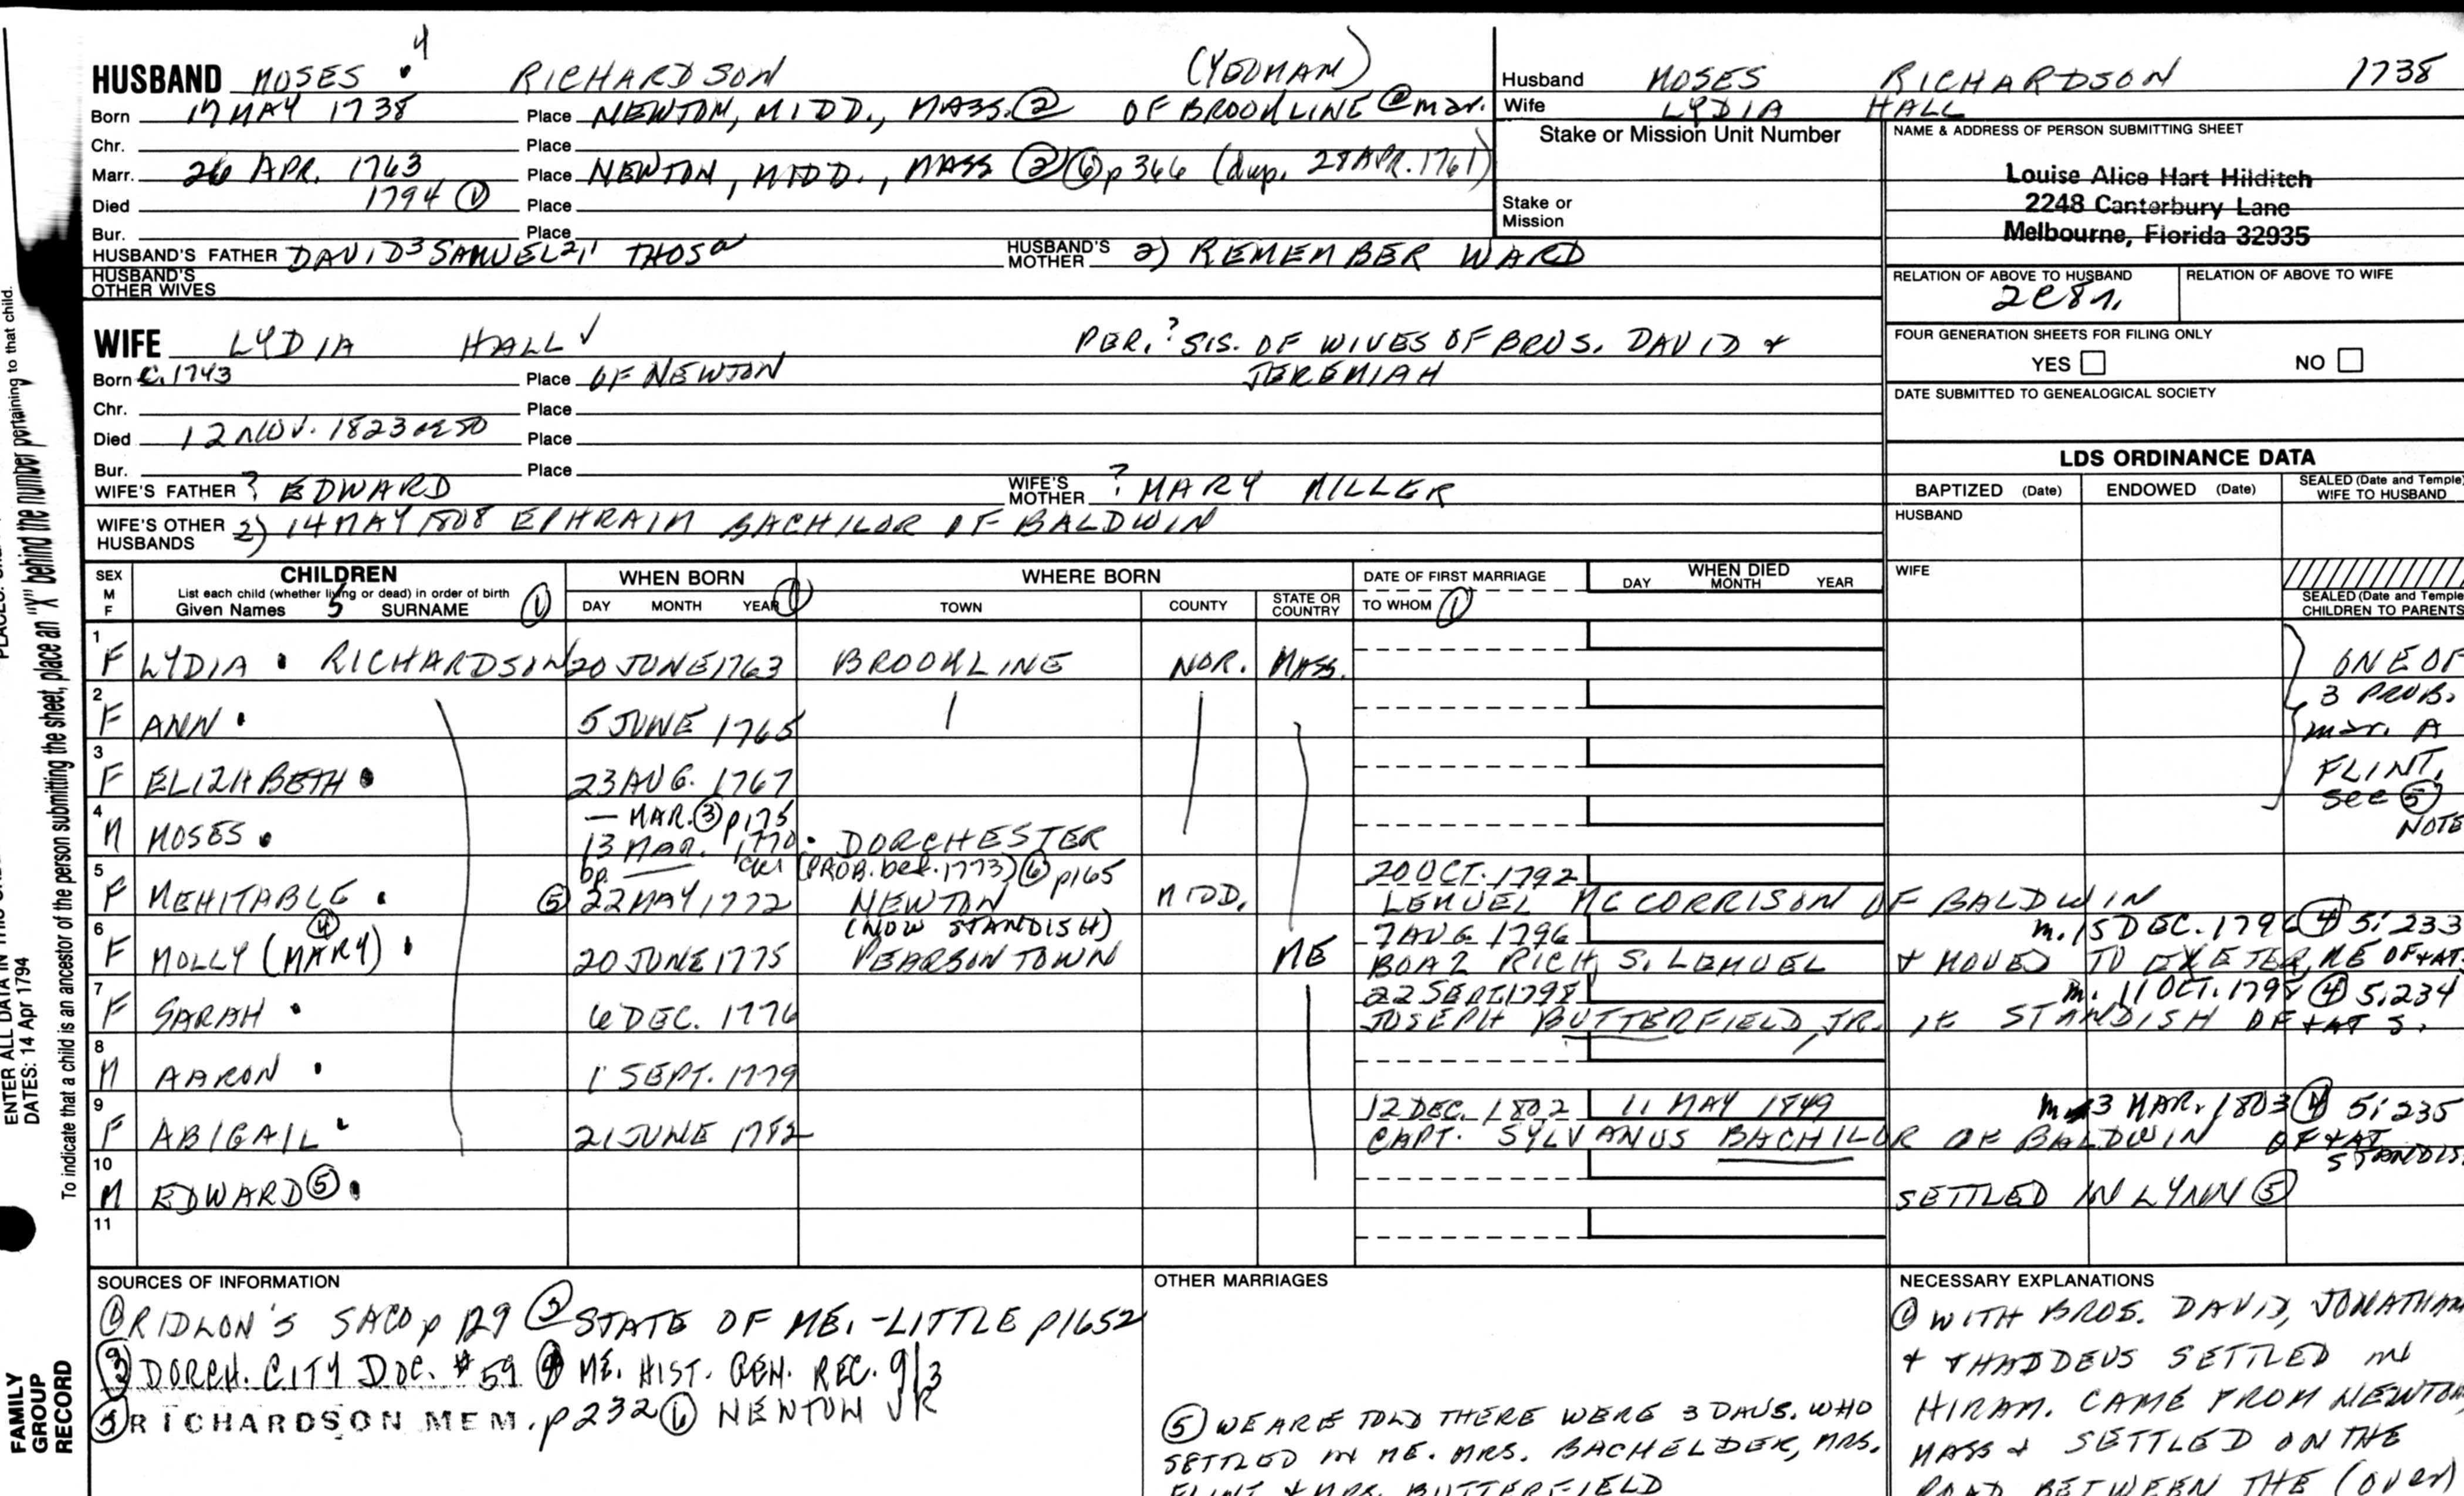 4
HUSBAND MOSES RICHARDSON (YEOMAN)
Born 17 MAY 1738 Place NEWTON, MIDD., MASS. ② OF BROOKLINE @ mar.
Chr. Place
Marr. 26 APR. 1763 Place NEWTON, MIDD., MASS ② ⑥ p 366 (dup. 28 APR. 1761)
Died 1794 ① Place
Bur. Place
HUSBAND'S FATHER DAVID³ SAMUEL²,¹ THOSª HUSBAND'S MOTHER 2) REMEMBER WARD
HUSBAND'S OTHER WIVES
WIFE LYDIA HALL ✓ PER.? SIS. OF WIVES OF BROS. DAVID +
Born C. 1743 Place OF NEWTON JEREMIAH
Chr. Place
Died 12 NOV. 1823 ae 80 Place
Bur. Place
WIFE'S FATHER ? EDWARD WIFE'S MOTHER ? MARY MILLER
WIFE'S OTHER HUSBANDS 2) 14 MAY 1808 EPHRAIM BACHILOR OF BALDWIN
Husband MOSES RICHARDSON 1738
Wife LYDIA HALL
Stake or Mission Unit Number
Stake or Mission
NAME & ADDRESS OF PERSON SUBMITTING SHEET
Louise Alice Hart Hilditch
2248 Canterbury Lane
Melbourne, Florida 32935
RELATION OF ABOVE TO HUSBAND RELATION OF ABOVE TO WIFE
2C8r.
FOUR GENERATION SHEETS FOR FILING ONLY
YES NO
DATE SUBMITTED TO GENEALOGICAL SOCIETY
LDS ORDINANCE DATA
BAPTIZED (Date) ENDOWED (Date) SEALED (Date and Temple) WIFE TO HUSBAND
HUSBAND
WIFE
SEALED (Date and Temple) CHILDREN TO PARENTS
SEX M F
CHILDREN
List each child (whether living or dead) in order of birth
Given Names 5 SURNAME ①
WHEN BORN
DAY MONTH YEAR ①
WHERE BORN
TOWN COUNTY STATE OR COUNTRY
DATE OF FIRST MARRIAGE
TO WHOM ①
WHEN DIED
DAY MONTH YEAR
1 F LYDIA RICHARDSON 20 JUNE 1763 BROOKLINE NOR. MASS.
2 F ANN 5 JUNE 1765
3 F ELIZABETH 23 AUG. 1767
ONE OF
3 PROB.
mar. A
FLINT,
see ⑤
NOTE
— MAR. ③ p 175
4 M MOSES 13 MAR. 1770 DORCHESTER
bp. (PROB. bet. 1773) ⑥ p 165 20 OCT. 1792
5 F MEHITABLE ⑤ 22 MAY 1772 NEWTON MIDD. LEMUEL MCCORRISON OF BALDWIN
④ (NOW STANDISH) 7 AUG 1796 m. 15 DEC. 1796 ④ 5:233
6 F MOLLY (MARY) 20 JUNE 1775 PEARSONTOWN ME BOAZ RICH, S. LEMUEL + MOVED TO EXETER, ME OF + AT
22 SEPT. 1798 m. 11 OCT. 1798 ④ 5:234
7 F SARAH 6 DEC. 1776 JOSEPH BUTTERFIELD, JR. STANDISH OF + AT S.
8 M AARON 1 SEPT. 1779
12 DEC. 1802 11 MAY 1849 m. 3 MAR. 1803 ④ 5:235
9 F ABIGAIL 21 JUNE 1782 CAPT. SYLVANUS BACHILOR OF BALDWIN OF + AT
STANDIS
10 M EDWARD ⑤ SETTLED IN LYNN ⑤
11
SOURCES OF INFORMATION
① RIDLON'S SACO p 129 ② STATE OF ME. - LITTLE p 1652
③ DORCH. CITY DOC. #59 ④ ME. HIST. GEN. REC. 9/3
⑤ RICHARDSON MEM. p 232 ⑥ NEWTON VR
OTHER MARRIAGES
⑤ WE ARE TOLD THERE WERE 3 DAUS. WHO
SETTLED IN ME. MRS. BACHELDER, MRS.
FLINT + MRS. BUTTERFIELD
NECESSARY EXPLANATIONS
① WITH BROS. DAVID, JONATHAN
+ THADDEUS SETTLED IN
HIRAM. CAME FROM NEWTON,
MASS + SETTLED ON THE
ROAD BETWEEN THE (over)
To indicate that a child is an ancestor of the person submitting the sheet, place an "X" behind the number pertaining to that child.
DATES: 14 Apr 1794
ENTER ALL DATA IN
FAMILY
GROUP
RECORD